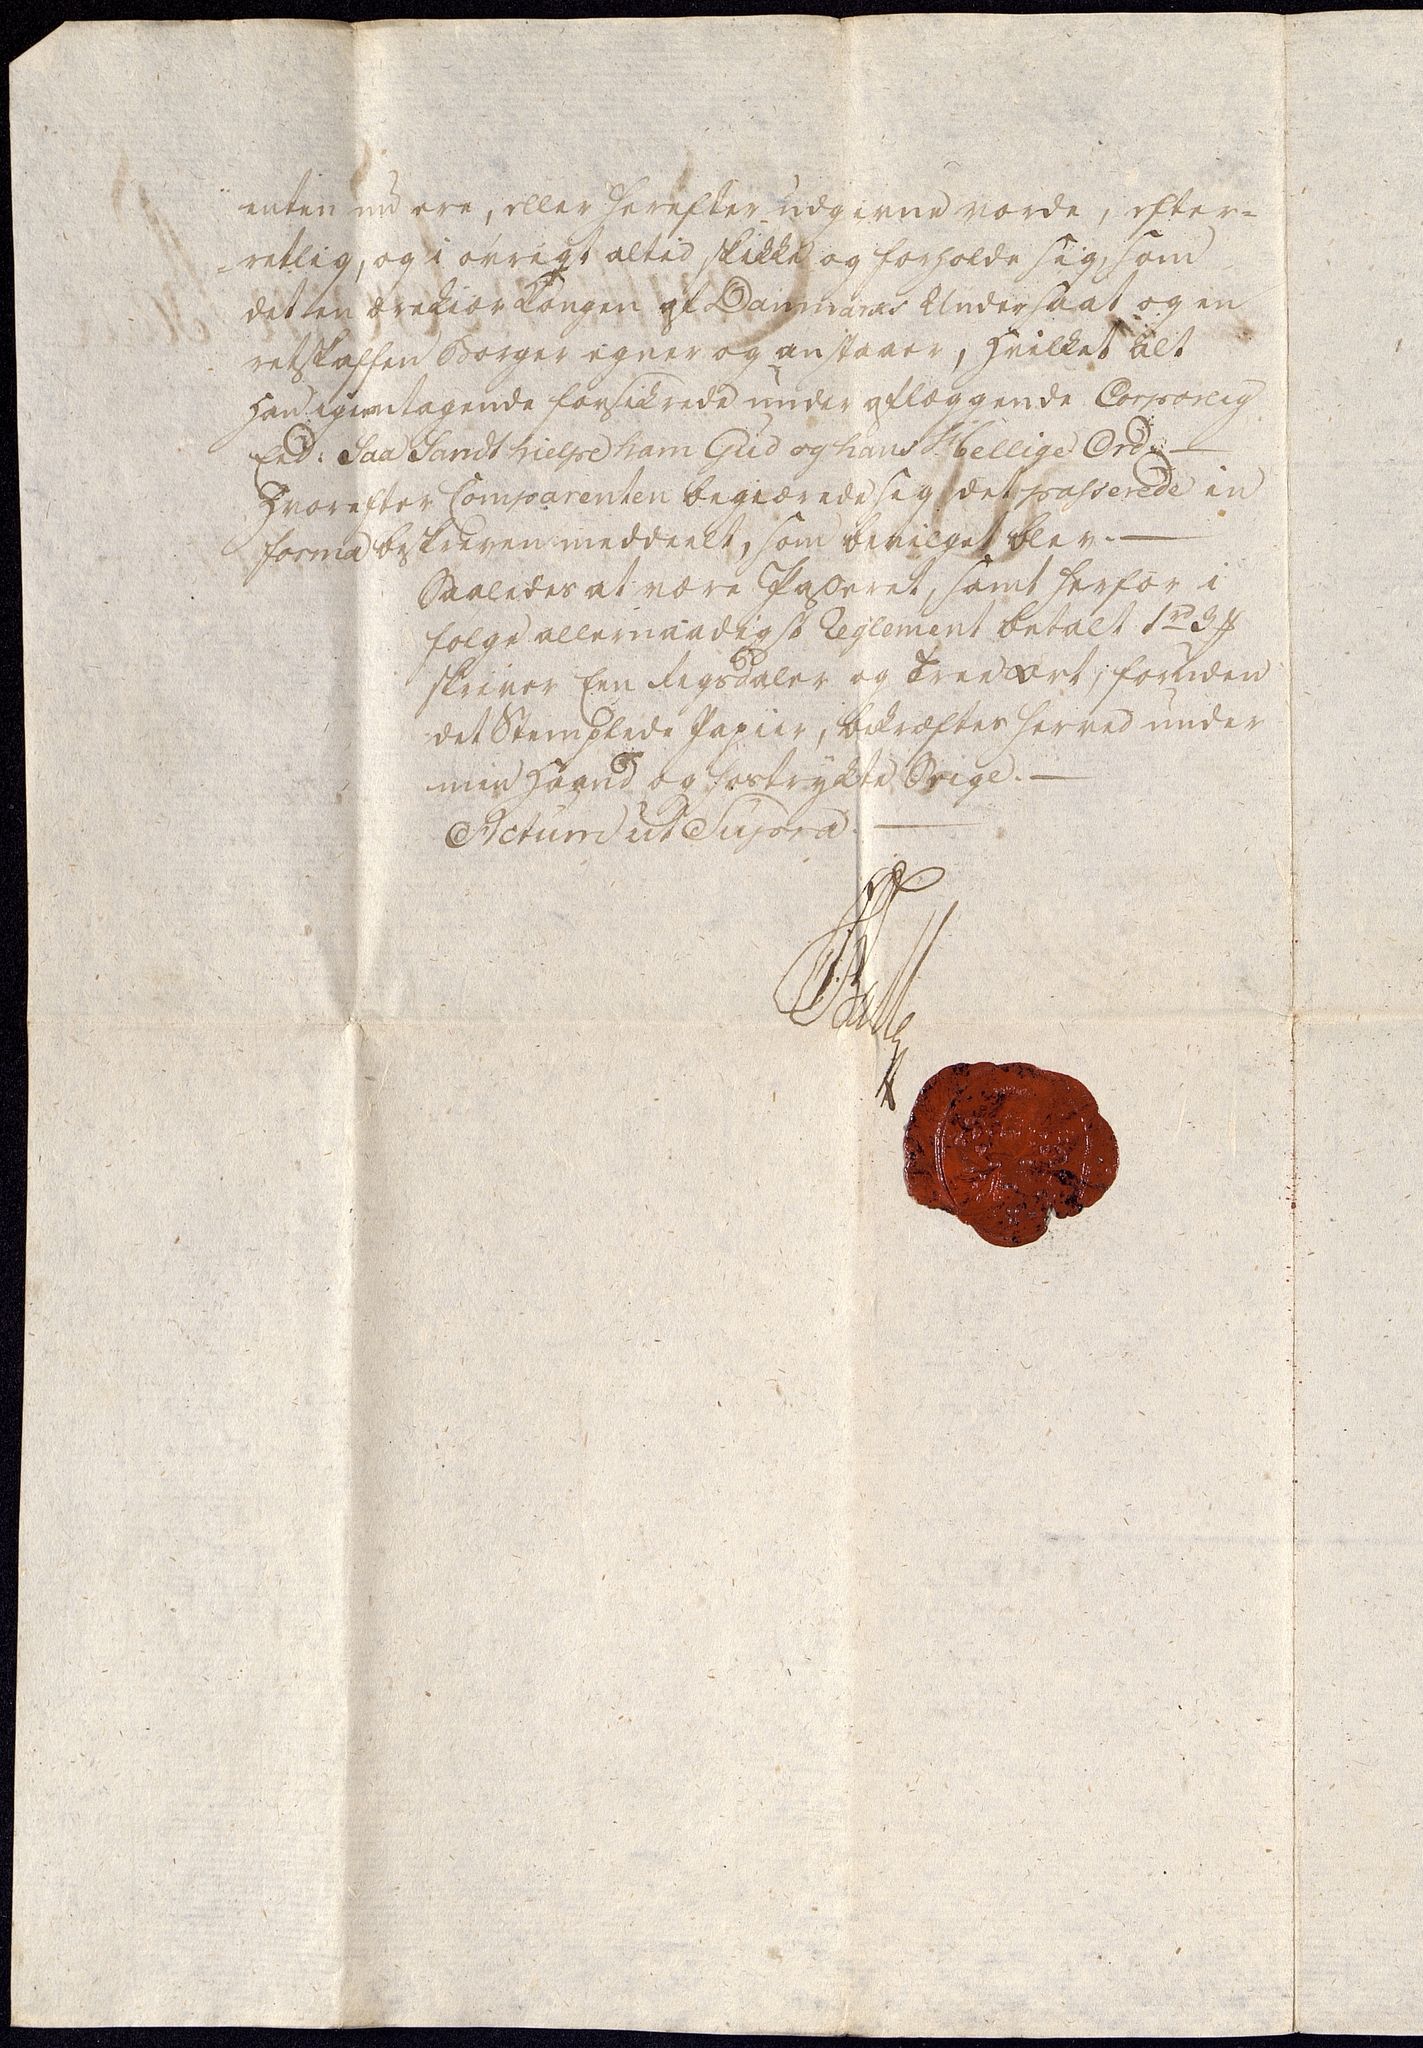 enten nu ere, eller herefter udgivne vorde, efter=
=retlig, og i øvrigt altid skikke og forholde sig, som
det en ærekiær Kongen af Danmarks Undersaat og en
retskaffen Borger egner og anstaaer, hvilket alt
han igientagende forsikrede under aflæggende Corporlig
Eed: Saa Sandt hielpe ham Gud og hans H: hellige Ord. —
Hvorefter Comparenten begiærede sig det passerede in
forma beskreven meddeelt, som bevilget blev. —
Saaledes at være Passeret, samt herfor i
følge allernaadigst Reglement betalt 1rd 3
skriver Een Rigsdaler og Tree ort, foruden
det Stemplede Papiir, bekræftes herved under
min Haand og hostrykte Seigl. —
Actum ut Supra. —